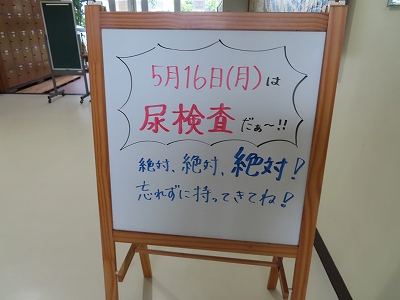 5月16日(月)は
尿検査だぁ～!!
絶対、絶対、絶対!
忘れずに持ってきてね!